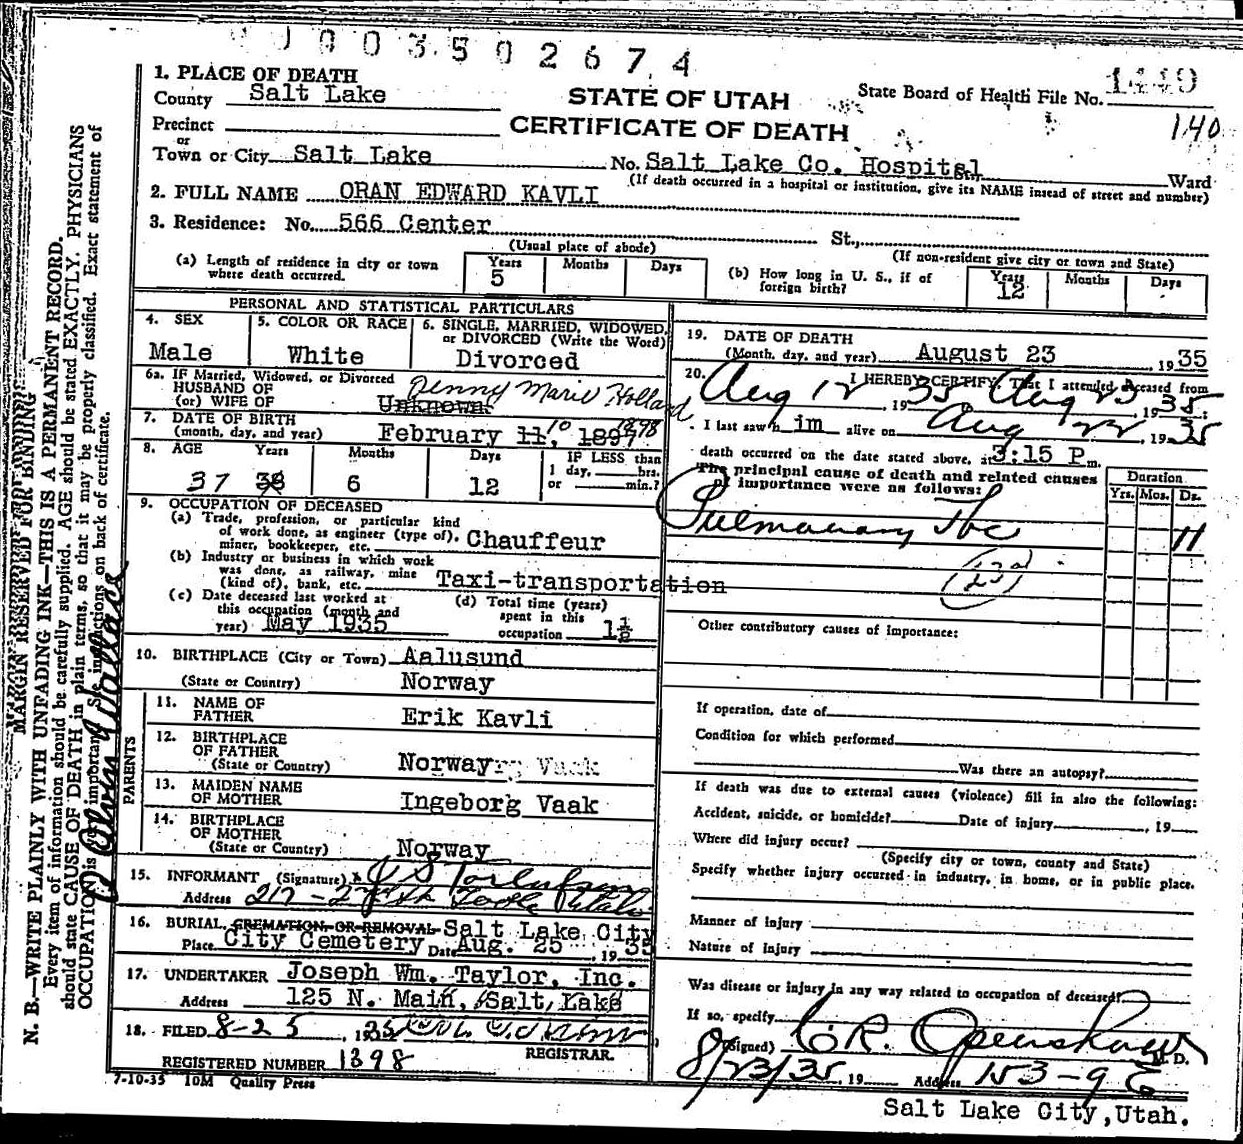 0003502674
1. PLACE OF DEATH
County Salt Lake
STATE OF UTAH
State Board of Health File No. 1449
CERTIFICATE OF DEATH
140
Precinct
or
Town or City Salt Lake No. Salt Lake Co. Hospital Ward
(If death occurred in a hospital or institution, give its NAME instead of street and number)
2. FULL NAME ORAN EDWARD KAVLI
3. Residence: No. 566 Center St.,
(Usual place of abode) (If non-resident give city or town and State)
(a) Length of residence in city or town where death occurred. Years 5 Months Days
(b) How long in U. S., if of foreign birth? Years 12 Months Days
PERSONAL AND STATISTICAL PARTICULARS
4. SEX Male
5. COLOR OR RACE White
6. SINGLE, MARRIED, WIDOWED, or DIVORCED (Write the Word) Divorced
6a. IF Married, Widowed, or Divorced
HUSBAND OF
(or) WIFE OF Unknown Penny Marie Holland
7. DATE OF BIRTH
(month, day, and year) February 11, 10 1897 1898
8. AGE Years 37 38 Months 6 Days 12 IF LESS than 1 day, hrs. or min.?
9. OCCUPATION OF DECEASED
(a) Trade, profession, or particular kind
of work done, as engineer (type of),
miner, bookkeeper, etc. Chauffeur
(b) Industry or business in which work
was done, as railway, mine
(kind of), bank, etc. Taxi-transportation
(c) Date deceased last worked at
this occupation (month and
year) May 1935
(d) Total time (years)
spent in this
occupation 1½
10. BIRTHPLACE (City or Town) Aalusund
(State or Country) Norway
PARENTS
11. NAME OF
FATHER Erik Kavli
12. BIRTHPLACE
OF FATHER
(State or Country) Norway
13. MAIDEN NAME
OF MOTHER Ingeborg Vaak
14. BIRTHPLACE
OF MOTHER
(State or Country) Norway
15. INFORMANT (Signature)
Address 217-2
16. BURIAL, CREMATION, OR REMOVAL Salt Lake City
Place City Cemetery Date Aug. 25, 1935
17. UNDERTAKER Joseph Wm. Taylor, Inc.
Address 125 N. Main, Salt Lake
18. FILED 8-25, 1935
REGISTRAR.
REGISTERED NUMBER 1398
7-10-35 10M Quality Press
19. DATE OF DEATH
(Month, day, and year) August 23 1935
20. I HEREBY CERTIFY, That I attended deceased from
Aug 12, 1935 Aug 23, 1935;
I last saw h im alive on Aug 22, 1935
death occurred on the date stated above, at 3:15 P m.
The principal cause of death and related causes
of importance were as follows:
Duration
Yrs. Mos. Ds.
Pulmonary Tbc 11
Other contributory causes of importance:
If operation, date of
Condition for which performed
Was there an autopsy?
If death was due to external causes (violence) fill in also the following:
Accident, suicide, or homicide? Date of injury , 19
Where did injury occur?
(Specify city or town, county and State)
Specify whether injury occurred in industry, in home, or in public place.
Manner of injury
Nature of injury
Was disease or injury in any way related to occupation of deceased?
If so, specify
(Signed) C.R. Openshaw M. D.
8/23/35, 19 Address 153-9 E
Salt Lake City, Utah.
MARGIN RESERVED FOR BINDING
N. B.—WRITE PLAINLY WITH UNFADING INK—THIS IS A PERMANENT RECORD.
Every item of information should be carefully supplied. AGE should be stated EXACTLY. PHYSICIANS
should state CAUSE OF DEATH in plain terms, so that it may be properly classified. Exact statement of
OCCUPATION is important. See instructions on back of certificate.